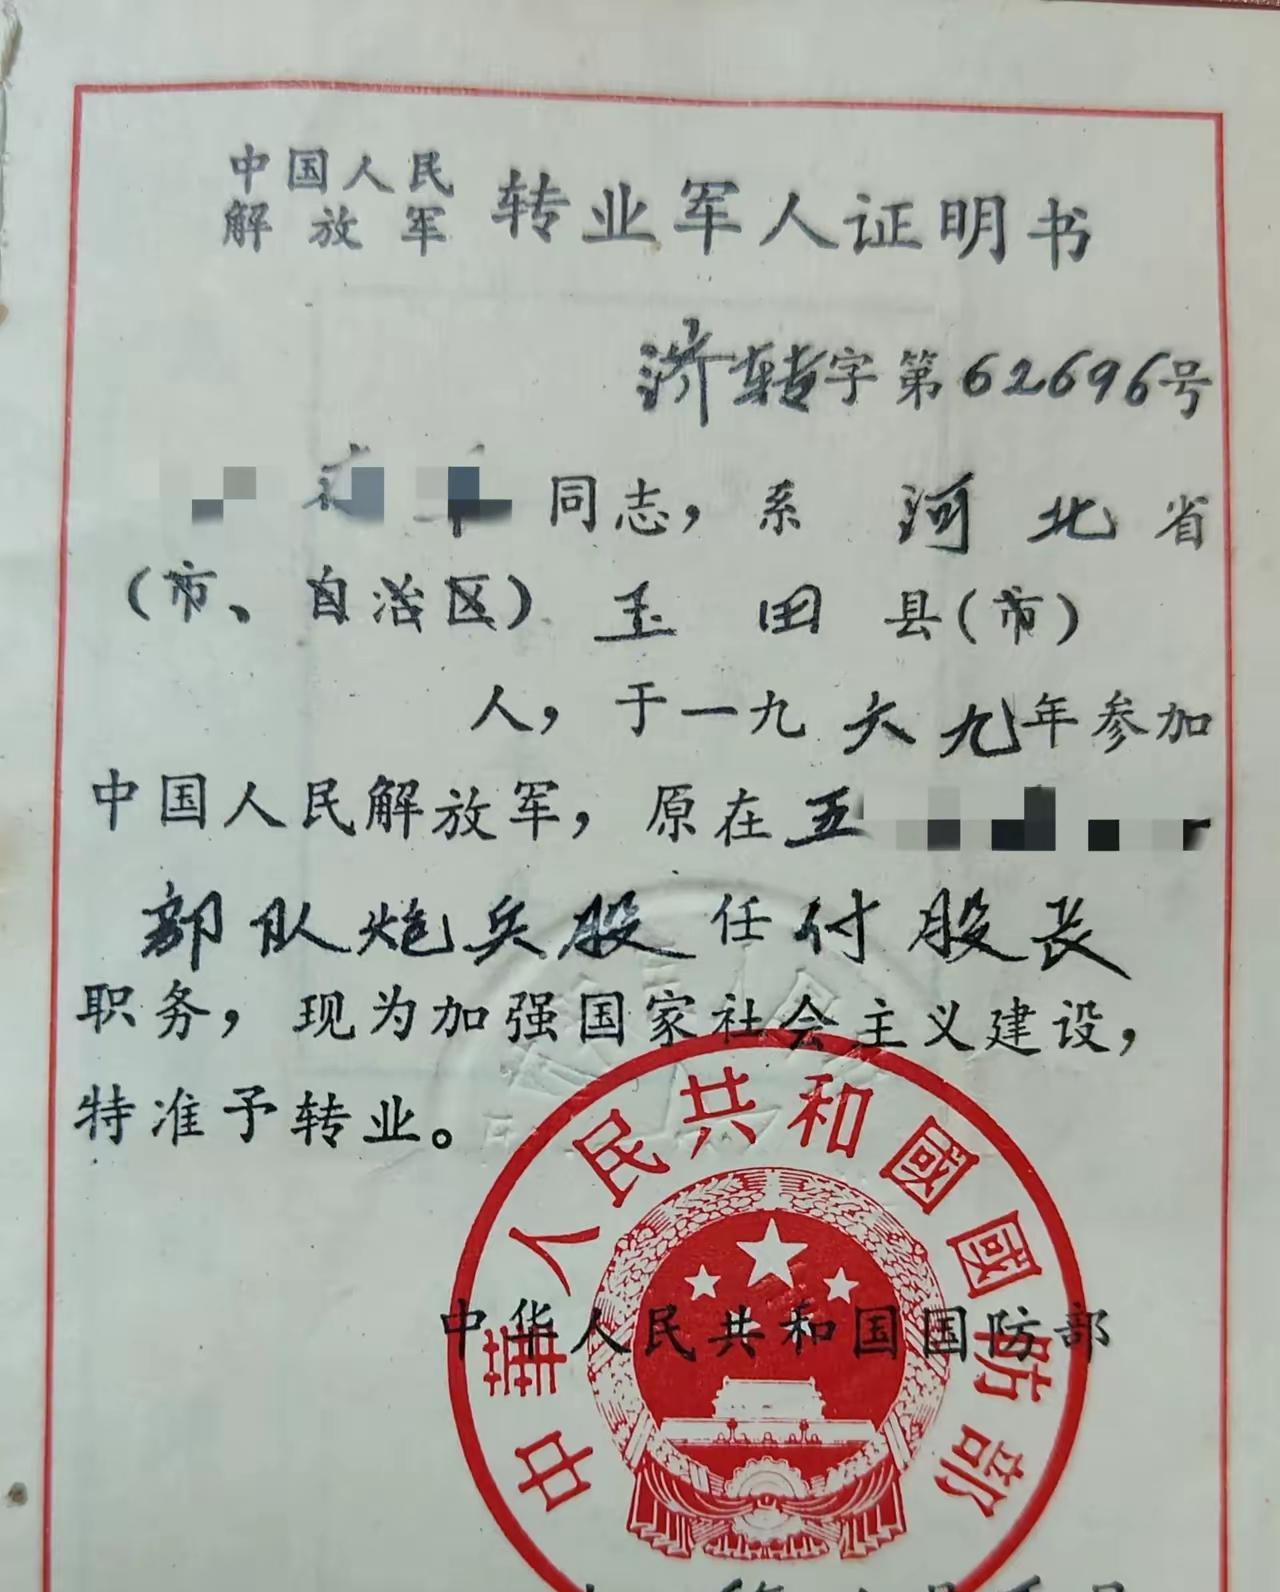 中国人民
解放军 转业军人证明书
济转字第62696号
同志，系 河北省
（市、自治区）玉田县（市）
人，于一九六九年参加
中国人民解放军，原在五
部队炮兵股任付股长
职务，现为加强国家社会主义建设，
特准予转业。
中华人民共和国国防部
中華人民共和國國防部